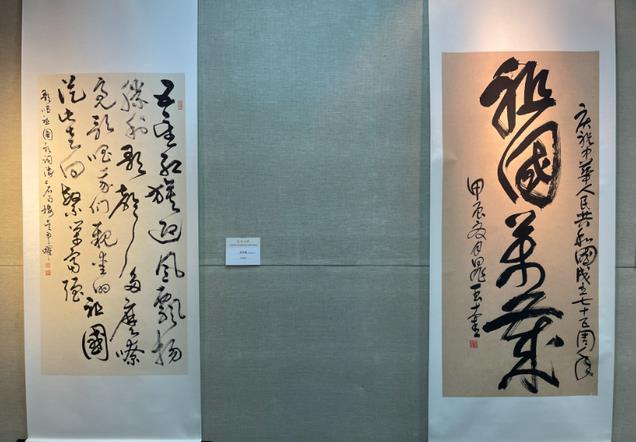 五星红旗迎风飘扬
胜利歌声多么嘹
亮歌唱我们亲爱的祖國
从此走向繁荣富强
歌唱祖國歌词
庆祝中華人民共和國成立七十五周年
祖國萬歲
甲辰夏月